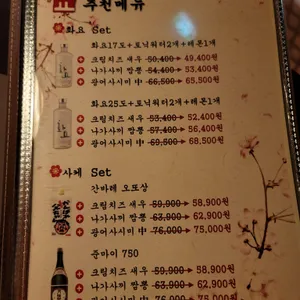 추천메뉴
화요 Set
화요17도+토닉워터2개+레몬1개
크림치즈 새우 50,400 → 49,400원
나가사끼 짬뽕 54,400 → 53,400원
광어사시미 中 66,500 → 65,500원
화요25도+토닉워터2개+레몬1개
크림치즈 새우 53,400 → 52,400원
나가사끼 짬뽕 57,400 → 56,400원
광어사시미 中 69,500 → 68,500원
사케 Set
간바레 오또상
크림치즈 새우 59,900 → 58,900원
나가사끼 짬뽕 63,900 → 62,900원
광어사시미 中 76,000 → 75,000원
준마이 750
크림치즈 새우 59,900 → 58,900원
나가사끼 짬뽕 63,900 → 62,900원
광어사시미 中 76,000 → 75,000원